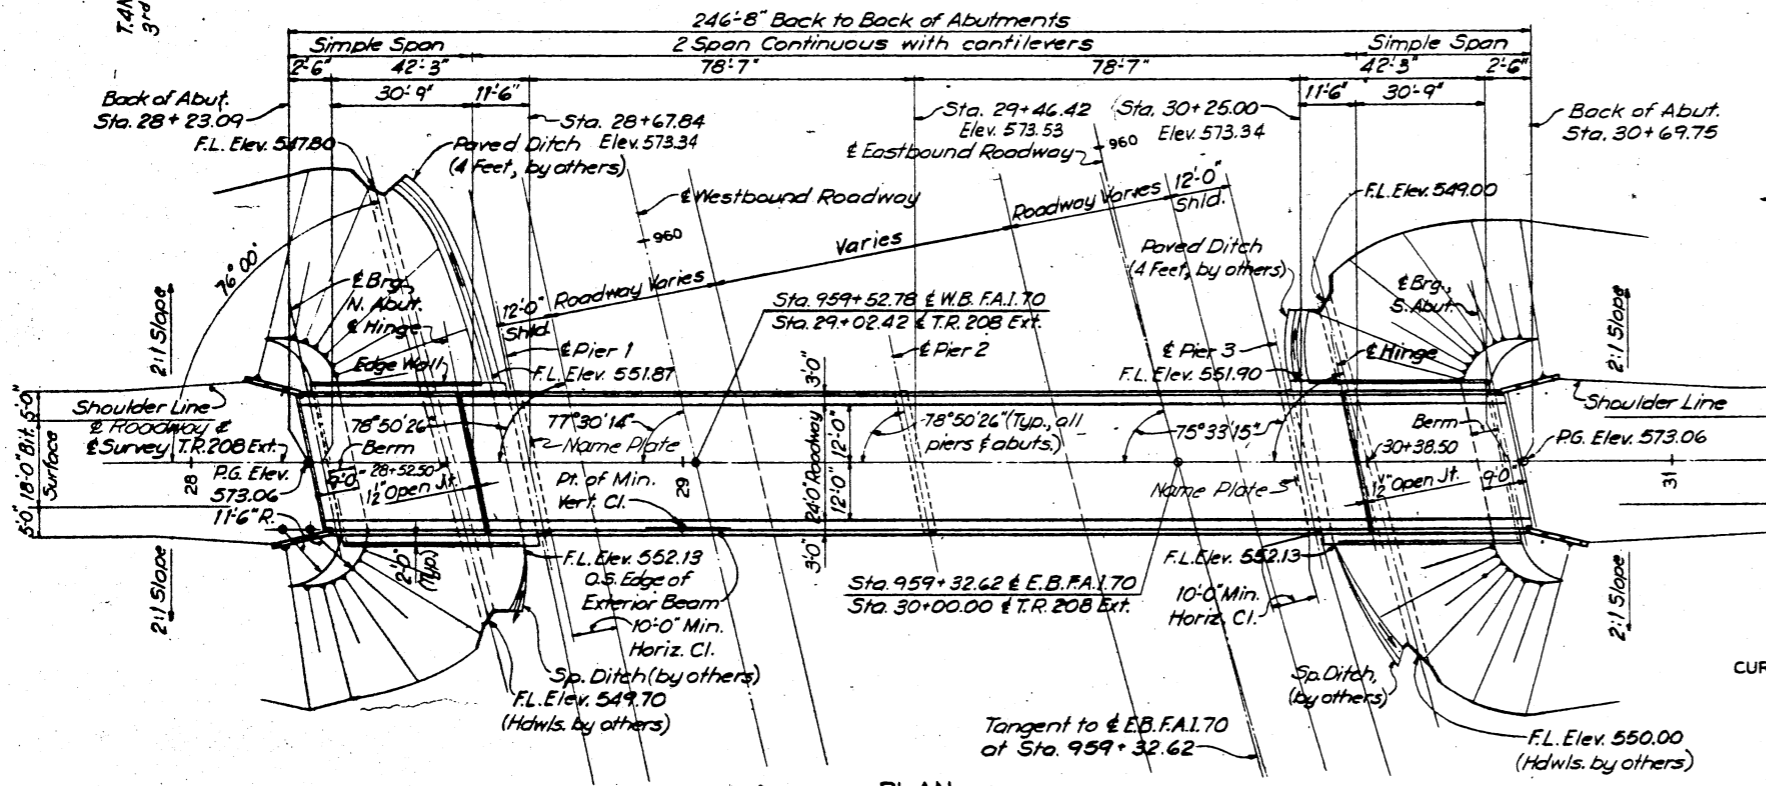 T.4N
3rd
246'-8" Back to Back of Abutments
Simple Span
2 Span Continuous with cantilevers
Simple Span
2'-6"
42'-3"
78'-7"
78'-7"
42'-3"
2'-6"
30'-9"
11'-6"
11'-6"
30'-9"
Back of Abut.
Sta. 28+23.09
Sta. 28+67.84
Elev. 573.34
Sta. 29+46.42
Elev. 573.53
Sta. 30+25.00
Elev. 573.34
Back of Abut.
Sta. 30+69.75
F.L. Elev. 547.80
Paved Ditch
(4 Feet, by others)
℄ Eastbound Roadway
960
℄ Westbound Roadway
960
Roadway Varies
12'-0"
Shld.
F.L. Elev. 549.00
Varies
Paved Ditch
(4 Feet, by others)
76°00'
℄ Brg.
N. Abut.
℄ Hinge
Edge Wall
12'-0"
Shld.
Roadway Varies
Sta. 959+52.78 ℄ W.B. F.A.I. 70
Sta. 29+02.42 ℄ T.R. 208 Ext.
℄ Brg.
S. Abut.
2:1 Slope
2:1 Slope
℄ Pier 1
F.L. Elev. 551.87
℄ Pier 2
℄ Pier 3
F.L. Elev. 551.90
℄ Hinge
3'-0"
5'-0"
18'-0" Bit.
Surface
5'-0"
Shoulder Line
℄ Roadway &
℄ Survey T.R. 208 Ext.
78°50'26"
Berm
77°30'14"
Name Plate
78°50'26" (Typ., all
piers & abuts.)
75°33'15"
Berm
Shoulder Line
30+38.50
P.G. Elev. 573.06
28
P.G. Elev.
573.06
9'-0"
28+52.50
1/2" Open Jt.
Pt. of Min.
Vert. Cl.
29
24'-0" Roadway
12'-0"
12'-0"
Name Plate
1/2" Open Jt.
9'-0"
31
11'-6" R.
2'-0"
(Typ.)
3'-0"
2:1 Slope
2:1 Slope
F.L. Elev. 552.13
O.S. Edge of
Exterior Beam
10'-0" Min.
Horiz. Cl.
Sta. 959+32.62 ℄ E.B. F.A.I. 70
Sta. 30+00.00 ℄ T.R. 208 Ext.
F.L. Elev. 552.13
10'-0" Min.
Horiz. Cl.
Sp. Ditch (by others)
F.L. Elev. 549.70
(Hdwls. by others)
Sp. Ditch,
(by others)
CUR
Tangent to ℄ E.B. F.A.I. 70
at Sta. 959+32.62
F.L. Elev. 550.00
(Hdwls. by others)
PLAN